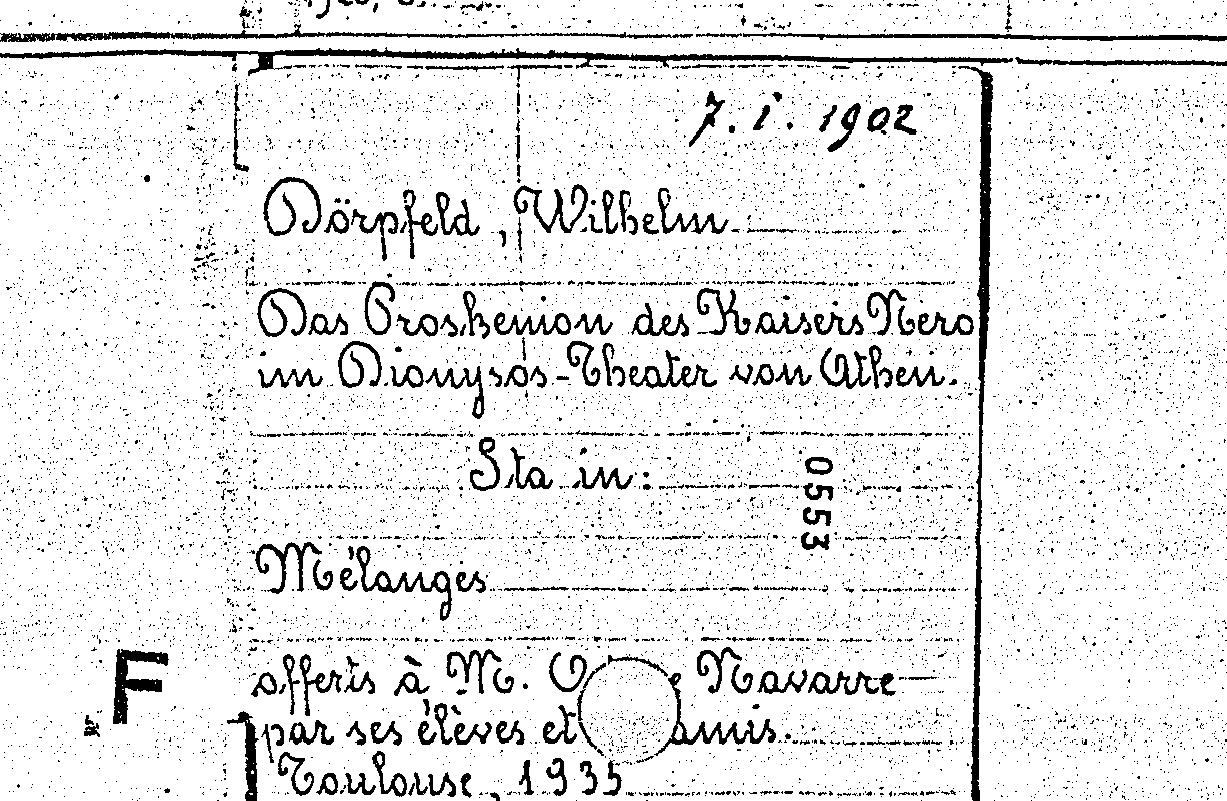 7. I. 1902
Dörpfeld, Wilhelm
Das Proskenion des Kaisers Nero
im Dionysos-Theater von Athen.
Sta in:
0553
Mélanges
offerts à M. Navarre
par ses élèves et amis.
Toulouse, 1935
F